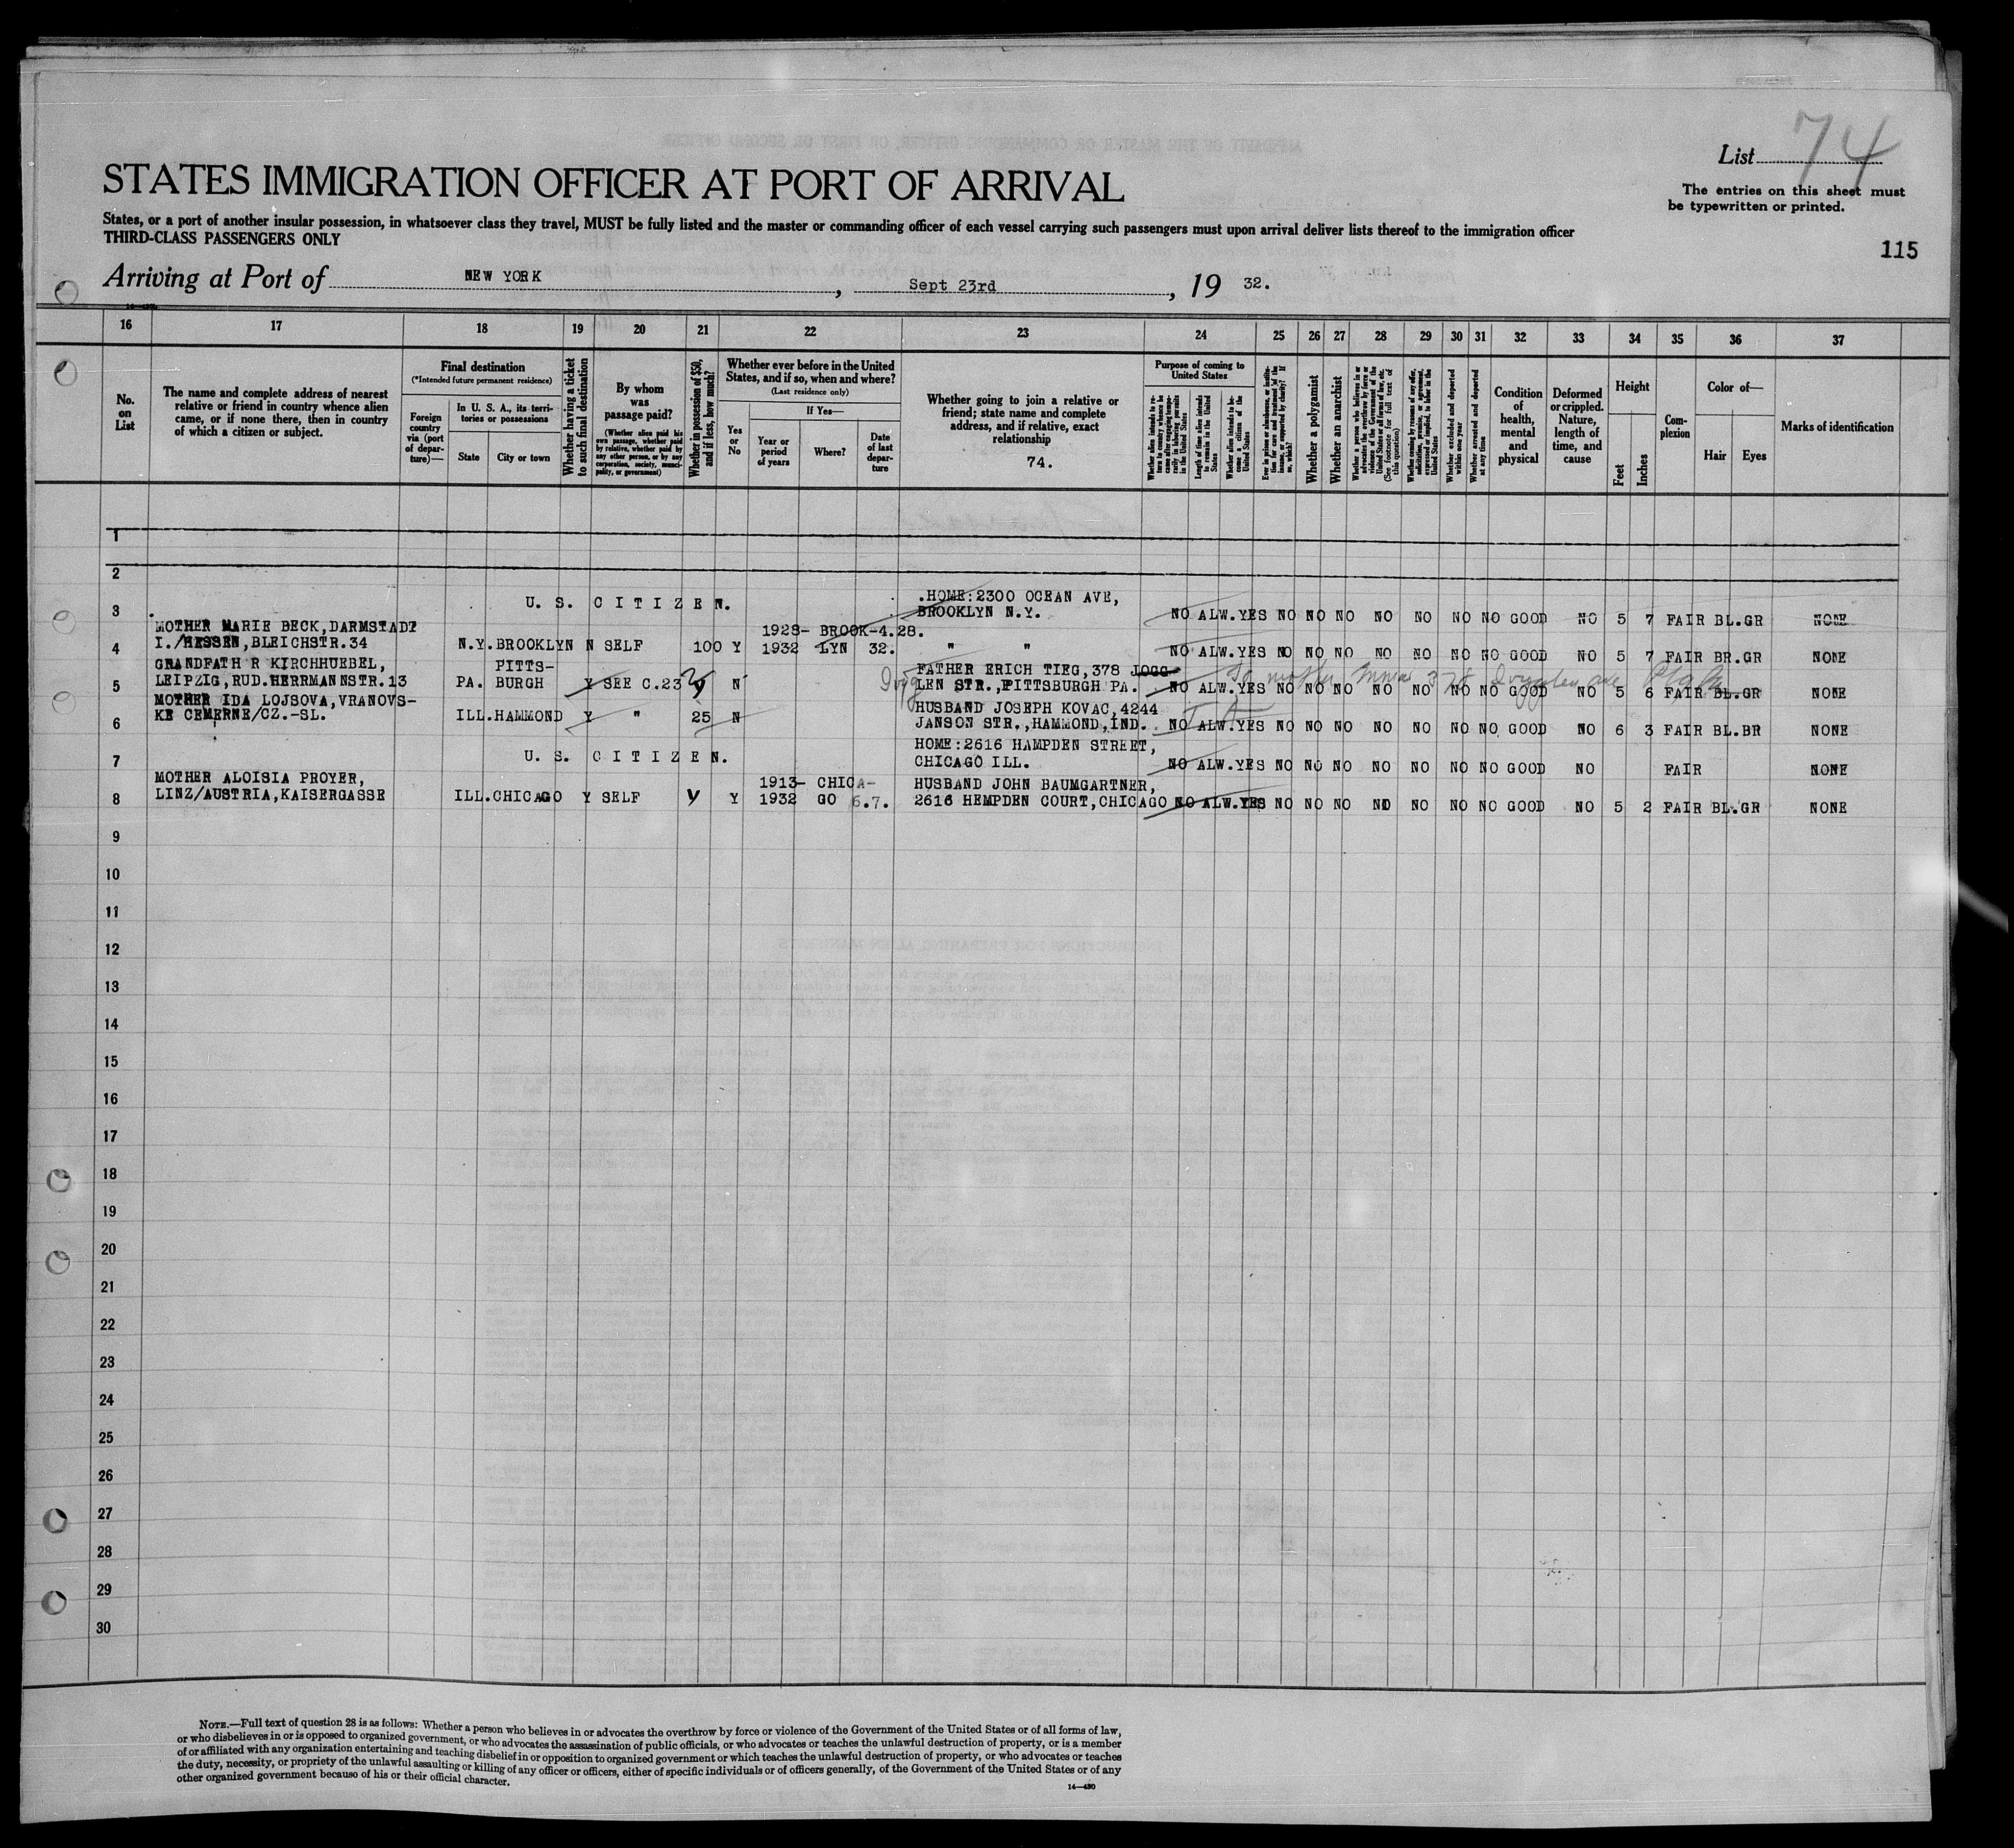 74
List
The entries on this sheet must
be typewritten or printed.
STATES IMMIGRATION OFFICER AT PORT OF ARRIVAL
States, or a port of another insular possession, in whatsoever class they travel, MUST be fully listed and the master or commanding officer of each vessel carrying such passengers must upon arrival deliver lists thereof to the immigration officer
THIRD-CLASS PASSENGERS ONLY
115
Arriving at Port of NEW YORK, Sept 23rd, 19 32.
16 17 18 19 20 21 22 23 24 25 26 27 28 29 30 31 32 33 34 35 36 37
No. on List
The name and complete address of nearest
relative or friend in country whence alien
came, or if none there, then in country
of which a citizen or subject.
Final destination
(*Intended future permanent residence)
Foreign country via (port of departure)—
In U. S. A., its territories or possessions
State
City or town
Whether having a ticket to such final destination
By whom was passage paid?
(Whether alien paid his own passage, whether paid by relative, whether paid by any other person, or by any corporation, society, municipality, or government)
Whether in possession of $50, and if less, how much?
Whether ever before in the United States, and if so, when and where?
(Last residence only)
Yes or No
If Yes—
Year or period of years
Where?
Date of last departure
Whether going to join a relative or
friend; state name and complete
address, and if relative, exact
relationship
74.
Purpose of coming to United States
Length of time alien intends to remain in the United States
Whether alien intends to become a citizen of the United States
Whether a polygamist
Whether an anarchist
Whether excluded and deported within one year
Whether arrested and deported at any time
Condition of health, mental and physical
Deformed or crippled. Nature, length of time, and cause
Height
Feet
Inches
Complexion
Color of—
Hair
Eyes
Marks of identification
1
2
3 U. S. CITIZEN. HOME:2300 OCEAN AVE,
BROOKLYN N.Y. NO ALW.YES NO NO NO NO NO NO NO GOOD NO 5 7 FAIR BL.GR NONE
MOTHER MARIE BECK,DARMSTADT
4 I./HESSEN,BLEICHSTR.34 N.Y.BROOKLYN N SELF 100 Y 1928- BROOK-4.28.
1932 LYN 32. " " NO ALW.YES NO NO NO NO NO NO NO GOOD NO 5 7 FAIR BR.GR NONE
GRANDFATH R KIRCHHUEBEL, PITTS- FATHER ERICH TIEG,378 JOGG-
5 LEIPZIG,RUD.HERRMANNSTR.13 PA. BURGH Y SEE C.23 N LEN STR.,PITTSBURGH PA. NO ALW.YES NO NO NO NO NO NO NO GOOD NO 5 6 FAIR BL.GR NONE
To mother 378
MOTHER IDA LOJSOVA,VRANOVS- HUSBAND JOSEPH KOVAC,4244
6 KE CEMERNE/CZ.-SL. ILL.HAMMOND Y " 25 N JANSON STR.,HAMMOND,IND. NO ALW.YES NO NO NO NO NO NO NO GOOD NO 6 3 FAIR BL.BR NONE
7 U. S. CITIZEN. HOME:2616 HAMPDEN STREET,
CHICAGO ILL. NO ALW.YES NO NO NO NO NO NO NO GOOD NO FAIR NONE
MOTHER ALOISIA PROYER, 1913- CHICA- HUSBAND JOHN BAUMGARTNER,
8 LINZ/AUSTRIA,KAISERGASSE ILL.CHICAGO Y SELF Y Y 1932 GO 6.7. 2616 HEMPDEN COURT,CHICAGO NO ALW.YES NO NO NO NO NO NO NO GOOD NO 5 2 FAIR BL.GR NONE
9
10
11
12
13
14
15
16
17
18
19
20
21
22
23
24
25
26
27
28
29
30
NOTE.—Full text of question 28 is as follows: Whether a person who believes in or advocates the overthrow by force or violence of the Government of the United States or of all forms of law,
or who disbelieves in or is opposed to organized government, or who advocates the assassination of public officials, or who advocates or teaches the unlawful destruction of property, or is a member
of or affiliated with any organization entertaining and teaching disbelief in or opposition to organized government or which teaches the unlawful destruction of property, or who advocates or teaches
the duty, necessity, or propriety of the unlawful assaulting or killing of any officer or officers, either of specific individuals or of officers generally, of the Government of the United States or of any
other organized government because of his or their official character.
14—430